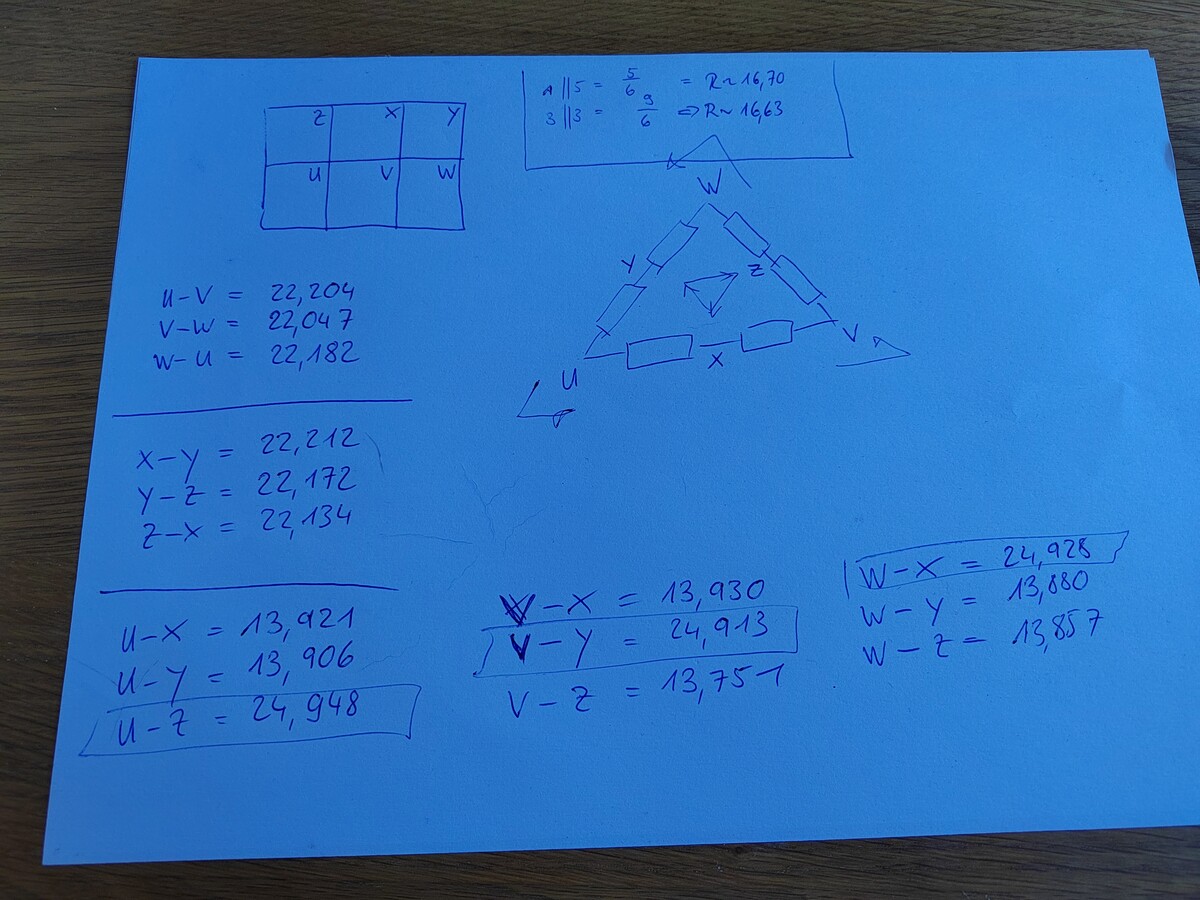 Z X Y
U V W
1||5 = 5/6 = R~16,70
3||3 = 9/6 => R~16,63
W
Y
Z
V
X
U
U-V = 22,204
V-W = 22,047
W-U = 22,182
X-Y = 22,212
Y-Z = 22,172
Z-X = 22,134
U-X = 13,921
U-Y = 13,906
U-Z = 24,948
V-X = 13,930
V-Y = 24,913
V-Z = 13,751
W-X = 24,928
W-Y = 13,880
W-Z = 13,857